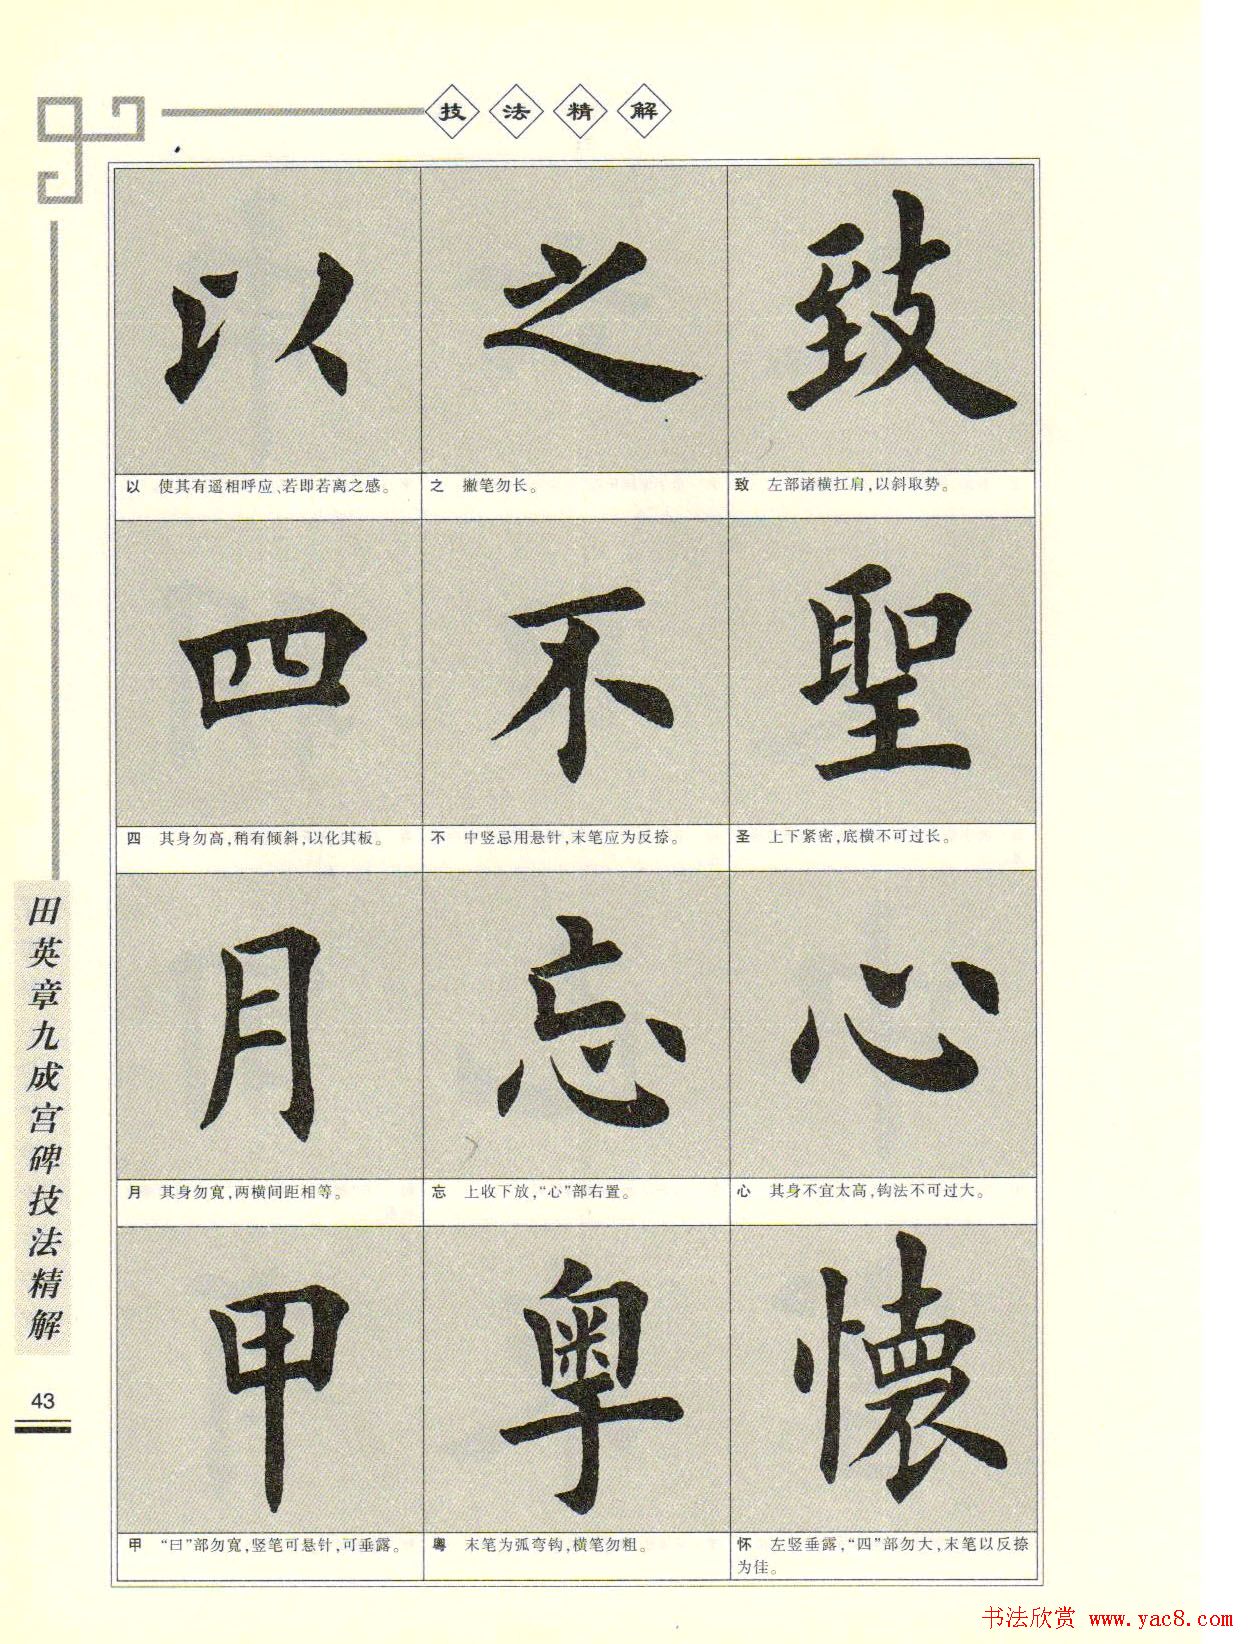 技法精解
以 之 致
以 使其有遥相呼应、若即若离之感。
之 撇笔勿长。
致 左部诸横扛肩,以斜取势。
四 不 聖
四 其身勿高,稍有倾斜,以化其板。
不 中竖忌用悬针,末笔应为反捺。
圣 上下紧密,底横不可过长。
月 忘 心
月 其身勿宽,两横间距相等。
忘 上收下放,“心”部右置。
心 其身不宜太高,钩法不可过大。
甲 粤 懷
甲 “曰”部勿宽,竖笔可悬针,可垂露。
粤 末笔为弧弯钩,横笔勿粗。
怀 左竖垂露,“四”部勿大,末笔以反捺
为佳。
田英章九成宫碑技法精解
43
书法欣赏 www.yac8.com